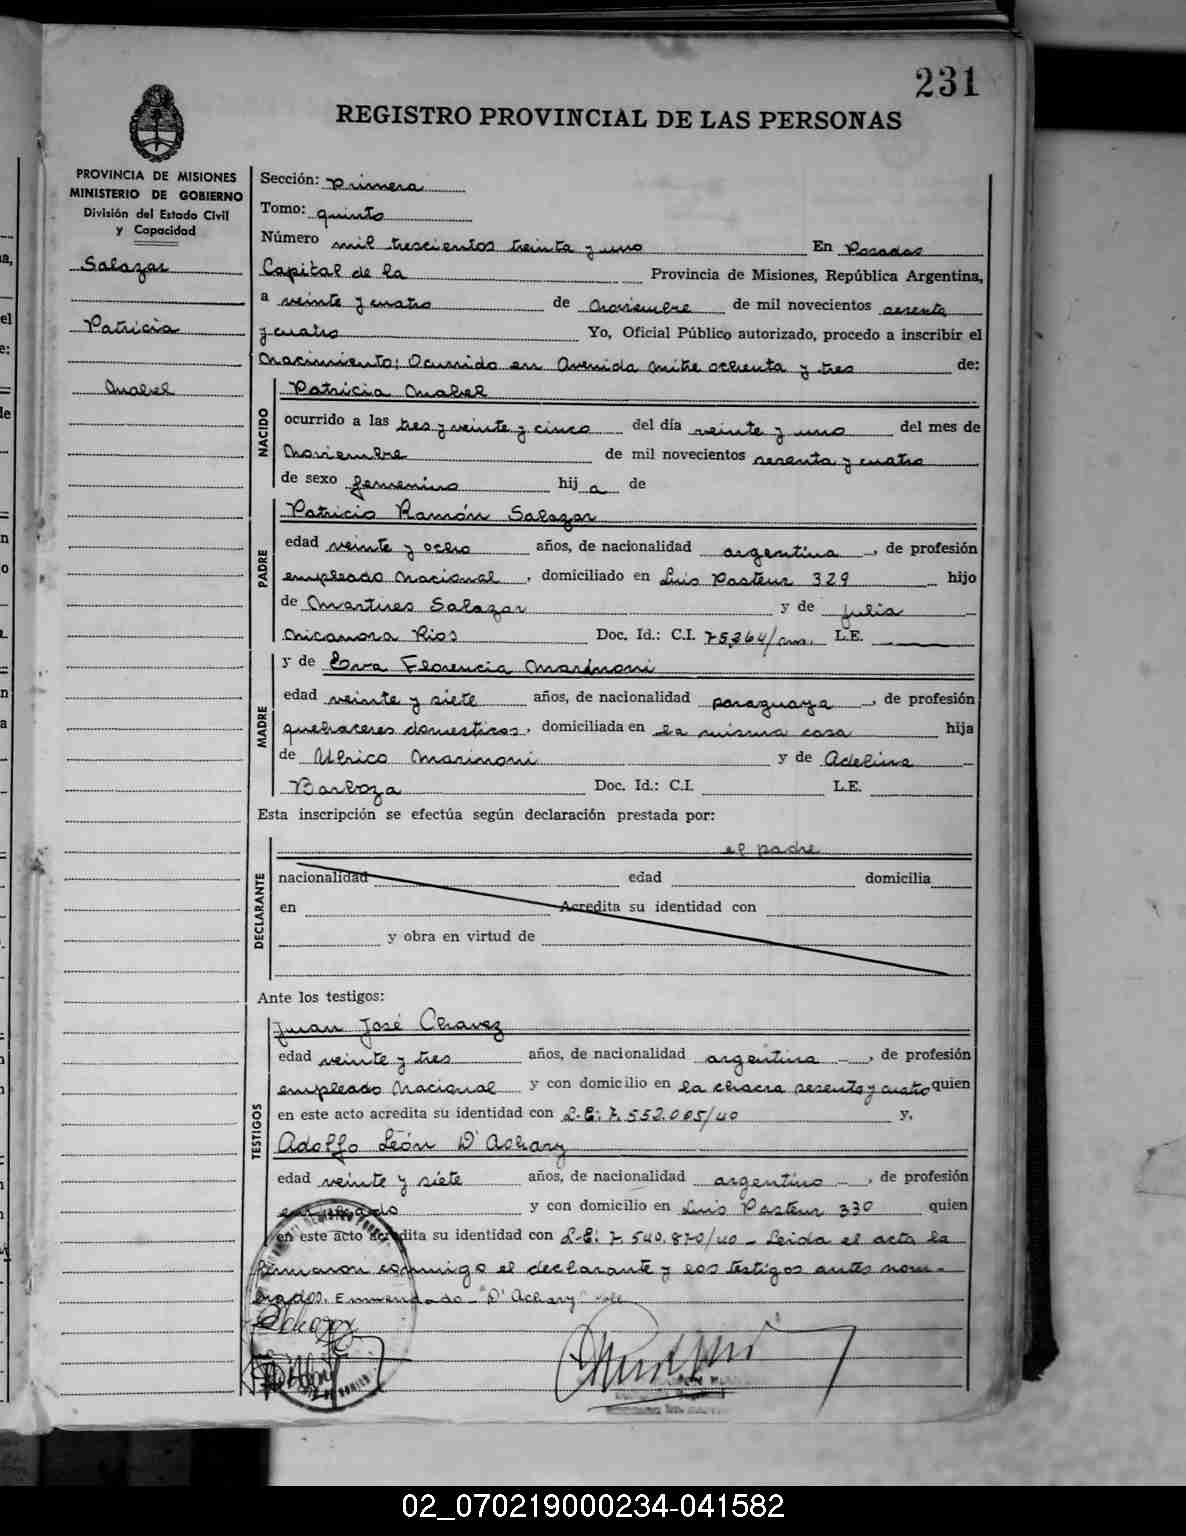 231
REGISTRO PROVINCIAL DE LAS PERSONAS
PROVINCIA DE MISIONES
MINISTERIO DE GOBIERNO
División del Estado Civil
y Capacidad
Salazar
Patricia
Mabel
Sección: Primera
Tomo: quinto
Número mil trescientos treinta y uno En Posadas
Capital de la Provincia de Misiones, República Argentina,
a veinte y cuatro de Noviembre de mil novecientos sesenta
y cuatro Yo, Oficial Público autorizado, procedo a inscribir el
Nacimiento; Ocurrido en Avenida Mitre ochenta y tres de:
NACIDO
Patricia Mabel
ocurrido a las tres y veinte y cinco del día veinte y uno del mes de
Noviembre de mil novecientos sesenta y cuatro
de sexo femenino hij a de
PADRE
Patricio Ramón Salazar
edad veinte y ocho años, de nacionalidad argentina, de profesión
empleado Nacional, domiciliado en Luis Pasteur 329 hijo
de Martires Salazar y de Julia
Nicanora Rios Doc. Id.: C.I. 75,364/ L.E.
MADRE
y de Eva Florencia Marinoni
edad veinte y siete años, de nacionalidad paraguaya, de profesión
quehaceres domesticos, domiciliada en la misma casa hija
de Ulrico Marinoni y de Adelina
Barboza Doc. Id.: C.I. L.E.
Esta inscripción se efectúa según declaración prestada por:
DECLARANTE
el padre
nacionalidad edad domicilia
en Acredita su identidad con
y obra en virtud de
Ante los testigos:
TESTIGOS
Juan José Chavez
edad veinte y tres años, de nacionalidad argentina, de profesión
empleado Nacional y con domicilio en la chacra sesenta y cuatro quien
en este acto acredita su identidad con L.E: 7.552.005/40 y,
Adolfo León D'Achary
edad veinte y siete años, de nacionalidad argentino, de profesión
empleado y con domicilio en Luis Pasteur 330 quien
en este acto acredita su identidad con L.E: 7.540.870/40 - Leida el acta la
firmaron conmigo el declarante y los testigos antes nom-
brados. Enmendado "D'Achary" vale
02_070219000234-041582